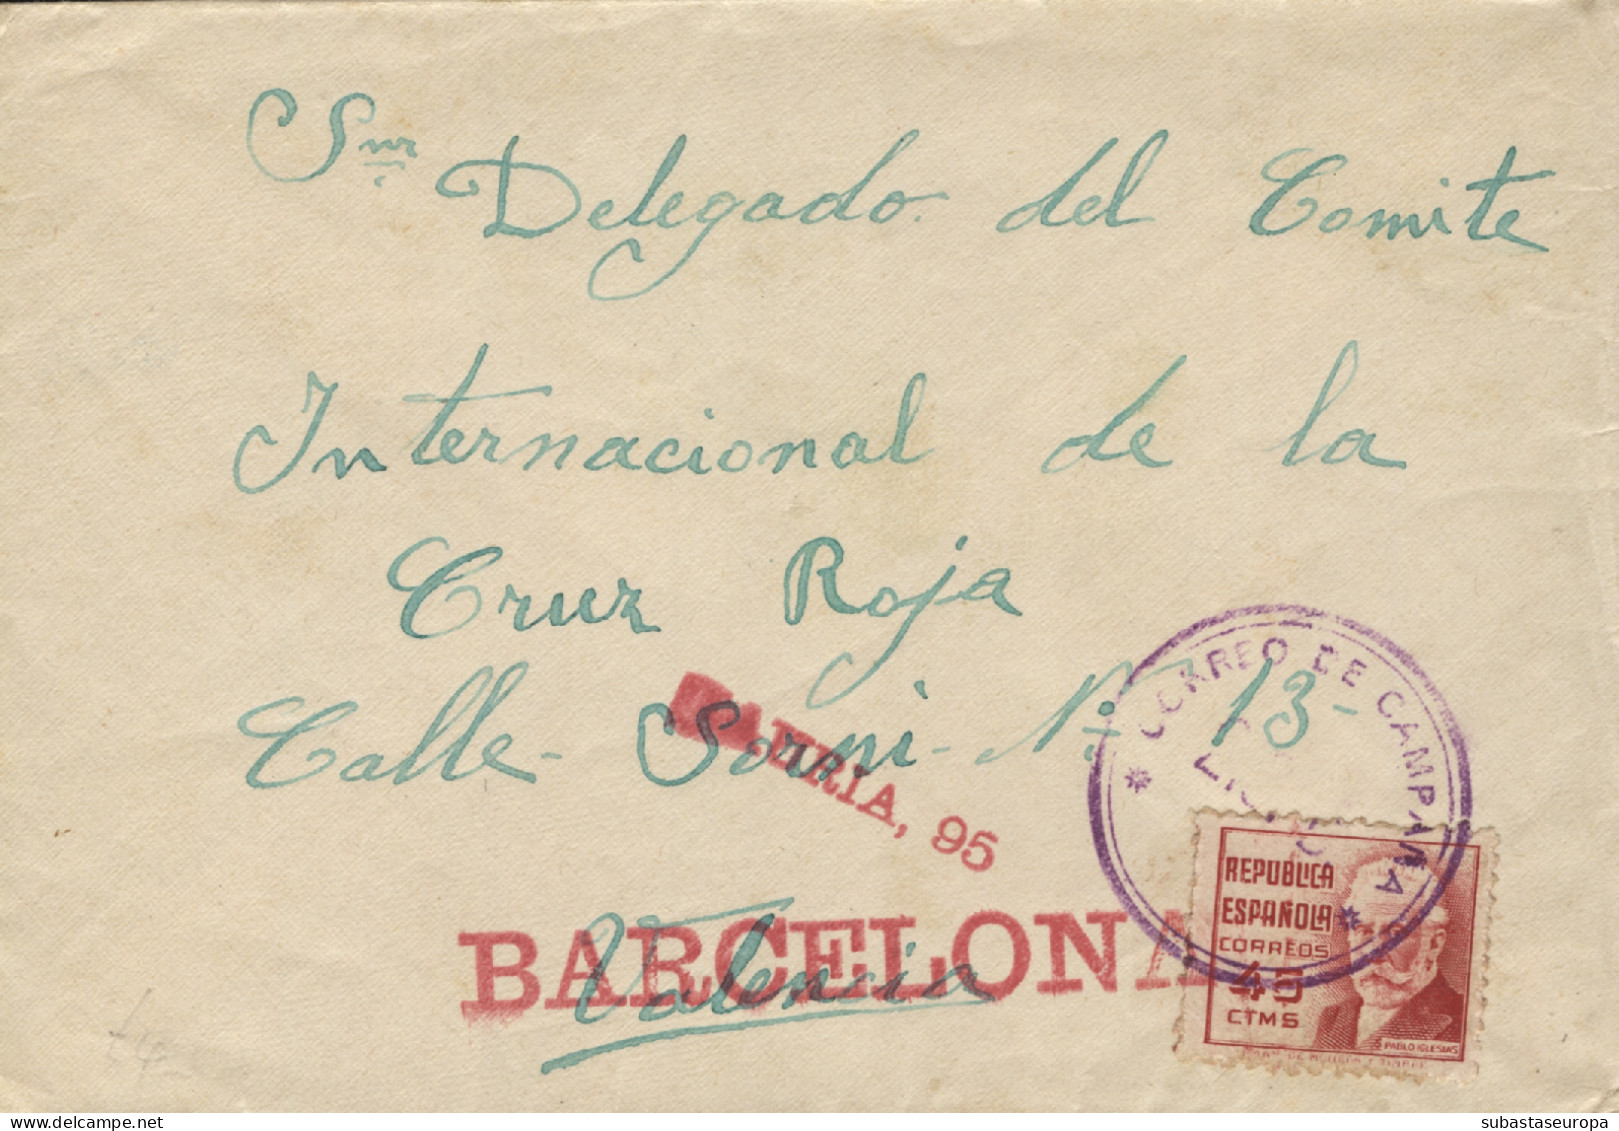 Snr Delegado del Comite
Internacional de la
Cruz Roja
Calle - Sorni - Nº 13 -
Valencia
LAURIA, 95
BARCELONA
* CORREO DE CAMPAÑA *
REPUBLICA
ESPAÑOLA
CORREOS
45
CTMS
PABLO IGLESIAS
subastaseuropa